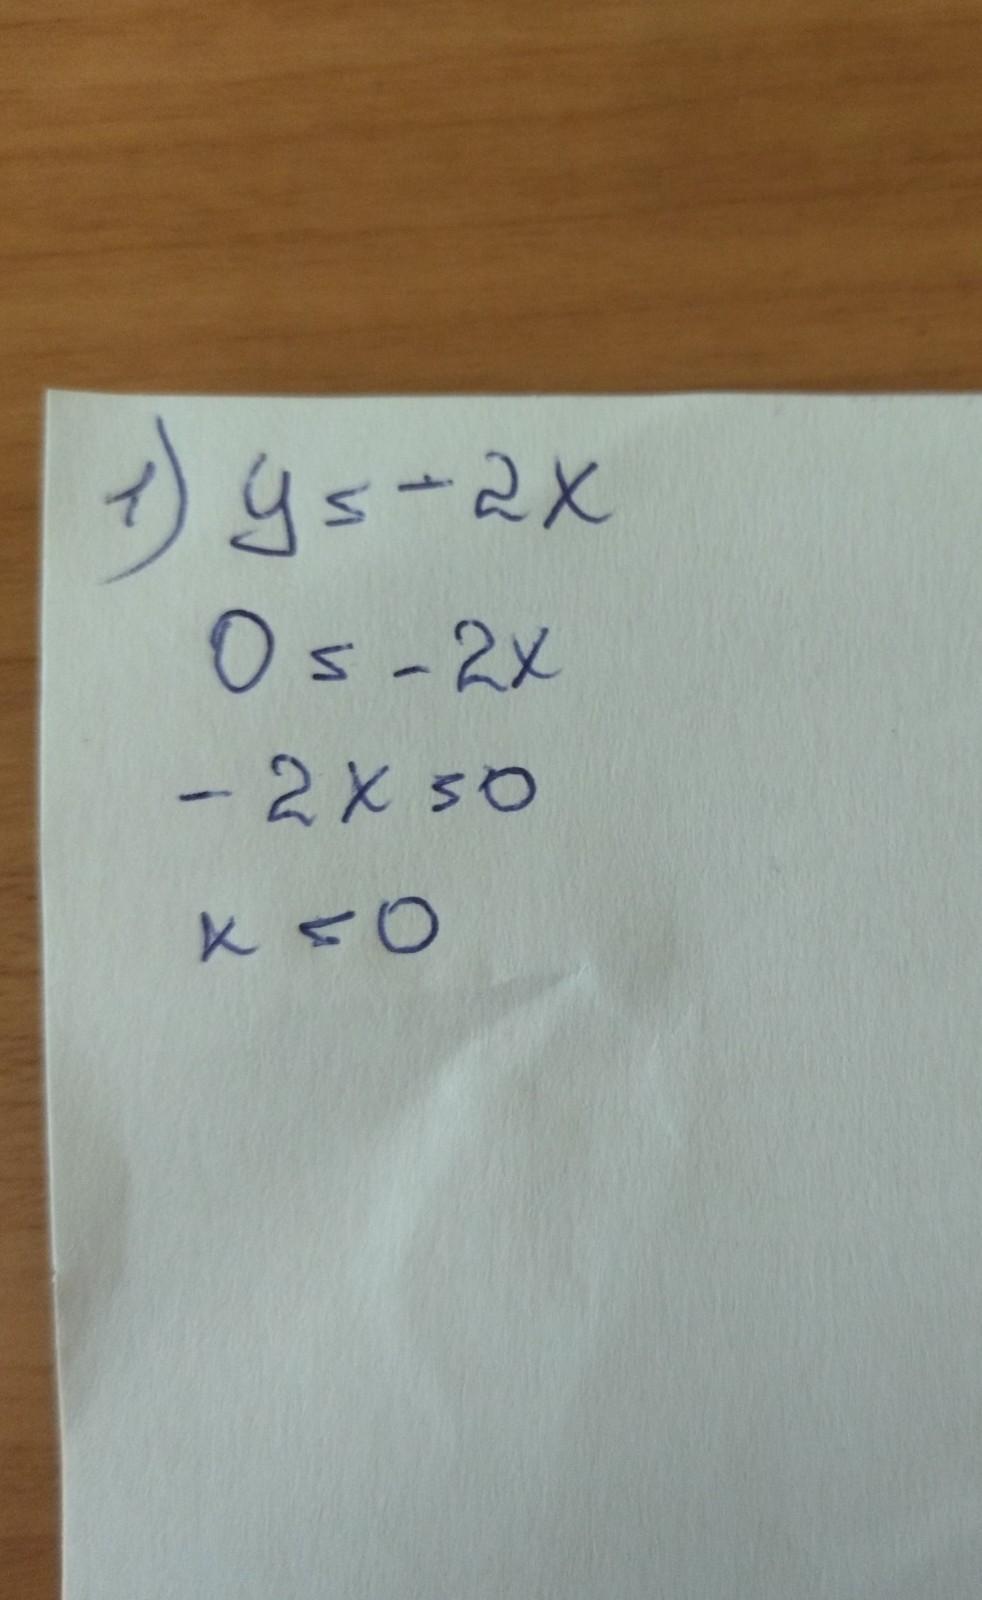 1) y = -2x
0 = -2x
-2x = 0
x = 0